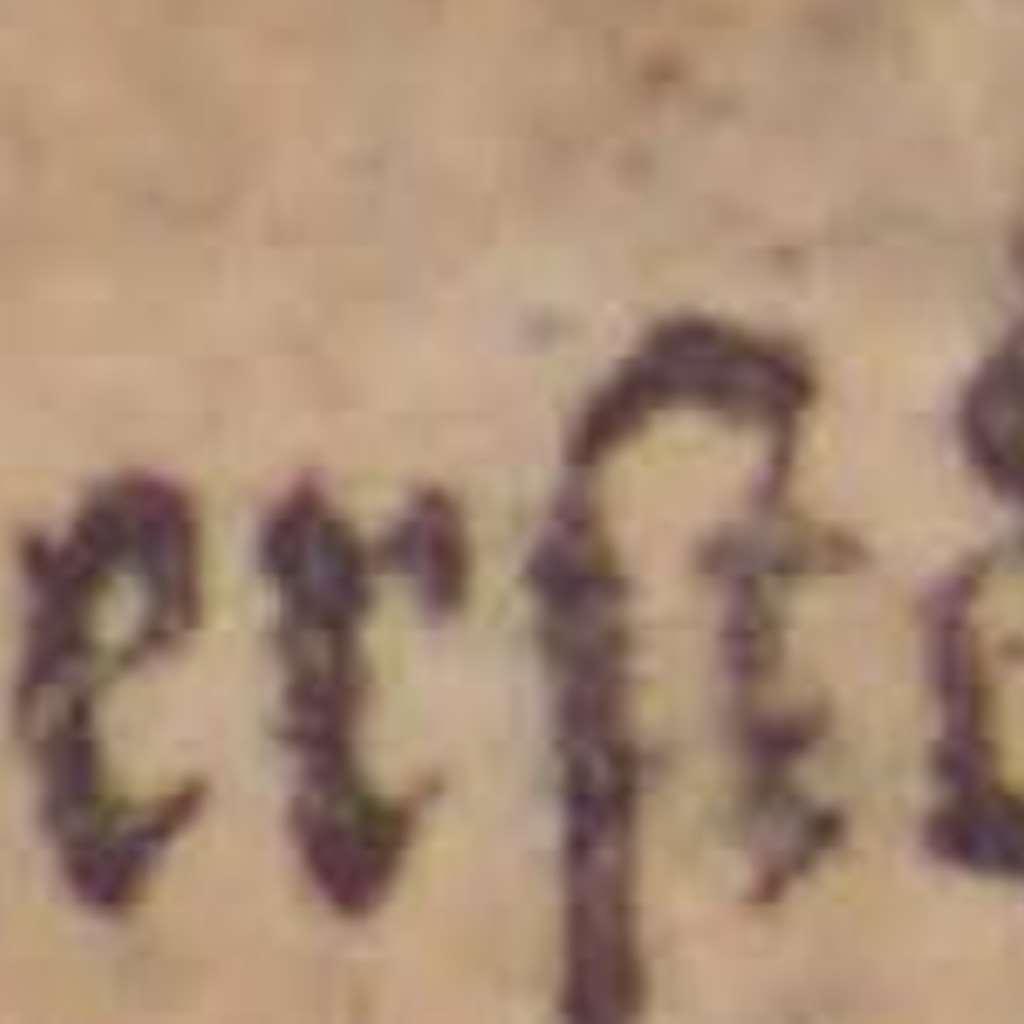 erſt